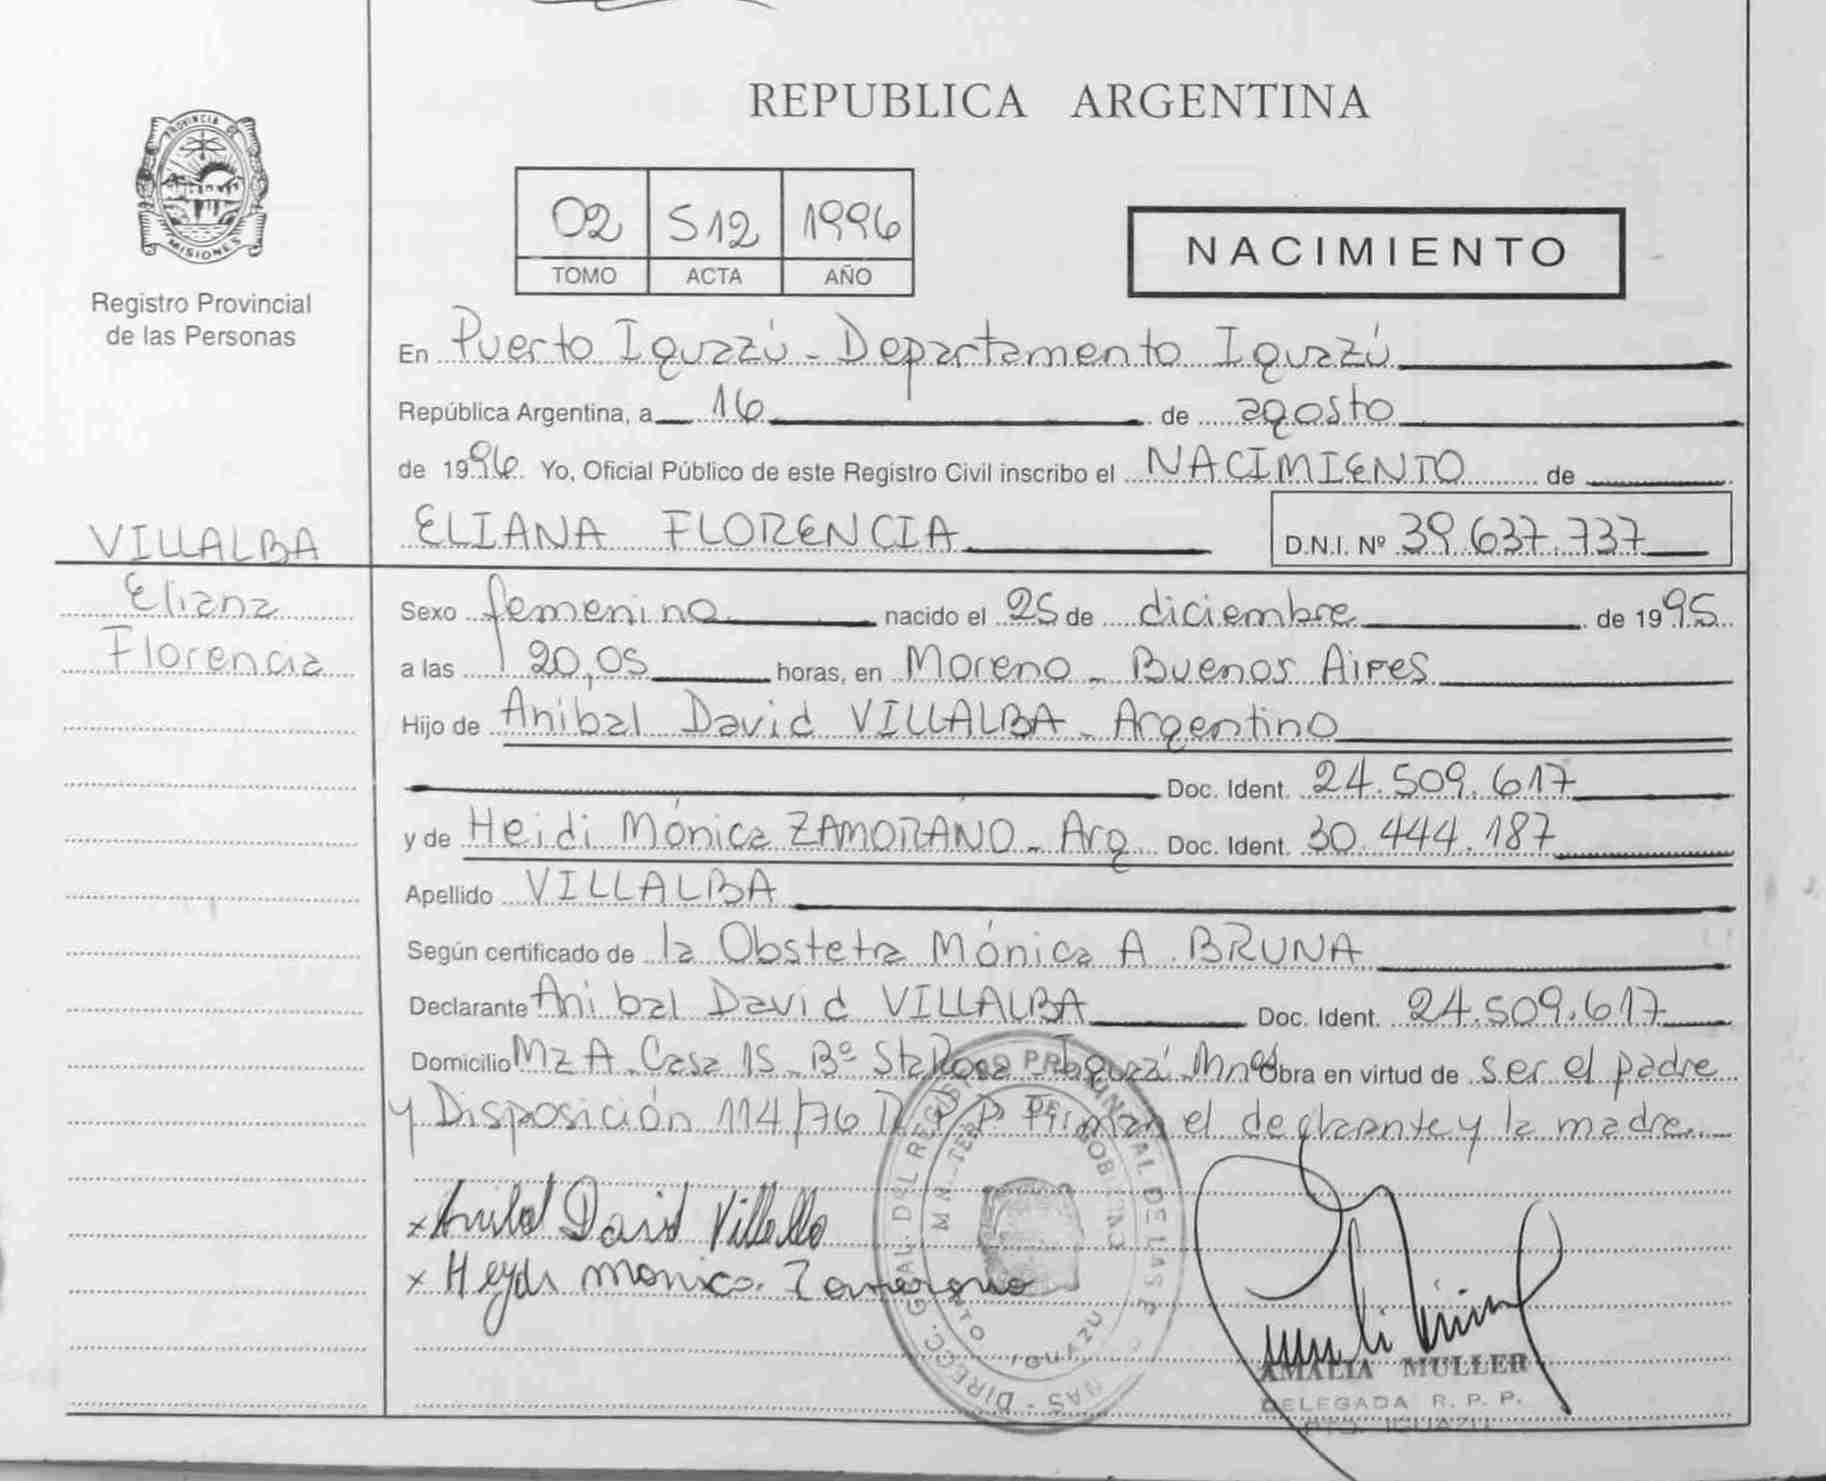 REPUBLICA ARGENTINA
PROVINCIA DE
MISIONES
Registro Provincial
de las Personas
02 512 1996
TOMO ACTA AÑO
NACIMIENTO
En Puerto Iguazú - Departamento Iguazú
República Argentina, a 16 de agosto
de 1996. Yo, Oficial Público de este Registro Civil inscribo el NACIMIENTO de
VILLALBA
Eliana
Florencia
ELIANA FLORENCIA D.N.I. Nº 39.637.737
Sexo femenino nacido el 25 de diciembre de 1995
a las 20,05 horas, en Moreno - Buenos Aires
Hijo de Anibal David VILLALBA - Argentino
Doc. Ident. 24.509.617
y de Heidi Mónica ZAMORANO - Arg Doc. Ident. 30.444.187
Apellido VILLALBA
Según certificado de la Obstetra Mónica A. BRUNA
Declarante Anibal David VILLALBA Doc. Ident. 24.509.617
Domicilio Mz A - Casa 15 - Bº Sta Rosa - Iguazú - Mnes Obra en virtud de ser el padre
y Disposición 114/76 R.P.P. Firman el declarante y la madre.
x Anibal David Villalba
x Heydi monica Zamorano
DIRECC. GRAL. DEL REGISTRO PROVINCIAL DE LAS PERSONAS
MINISTERIO DE GOBIERNO
PTO IGUAZU
AMALIA MULLER
DELEGADA R. P. P.
PTO. IGUAZU